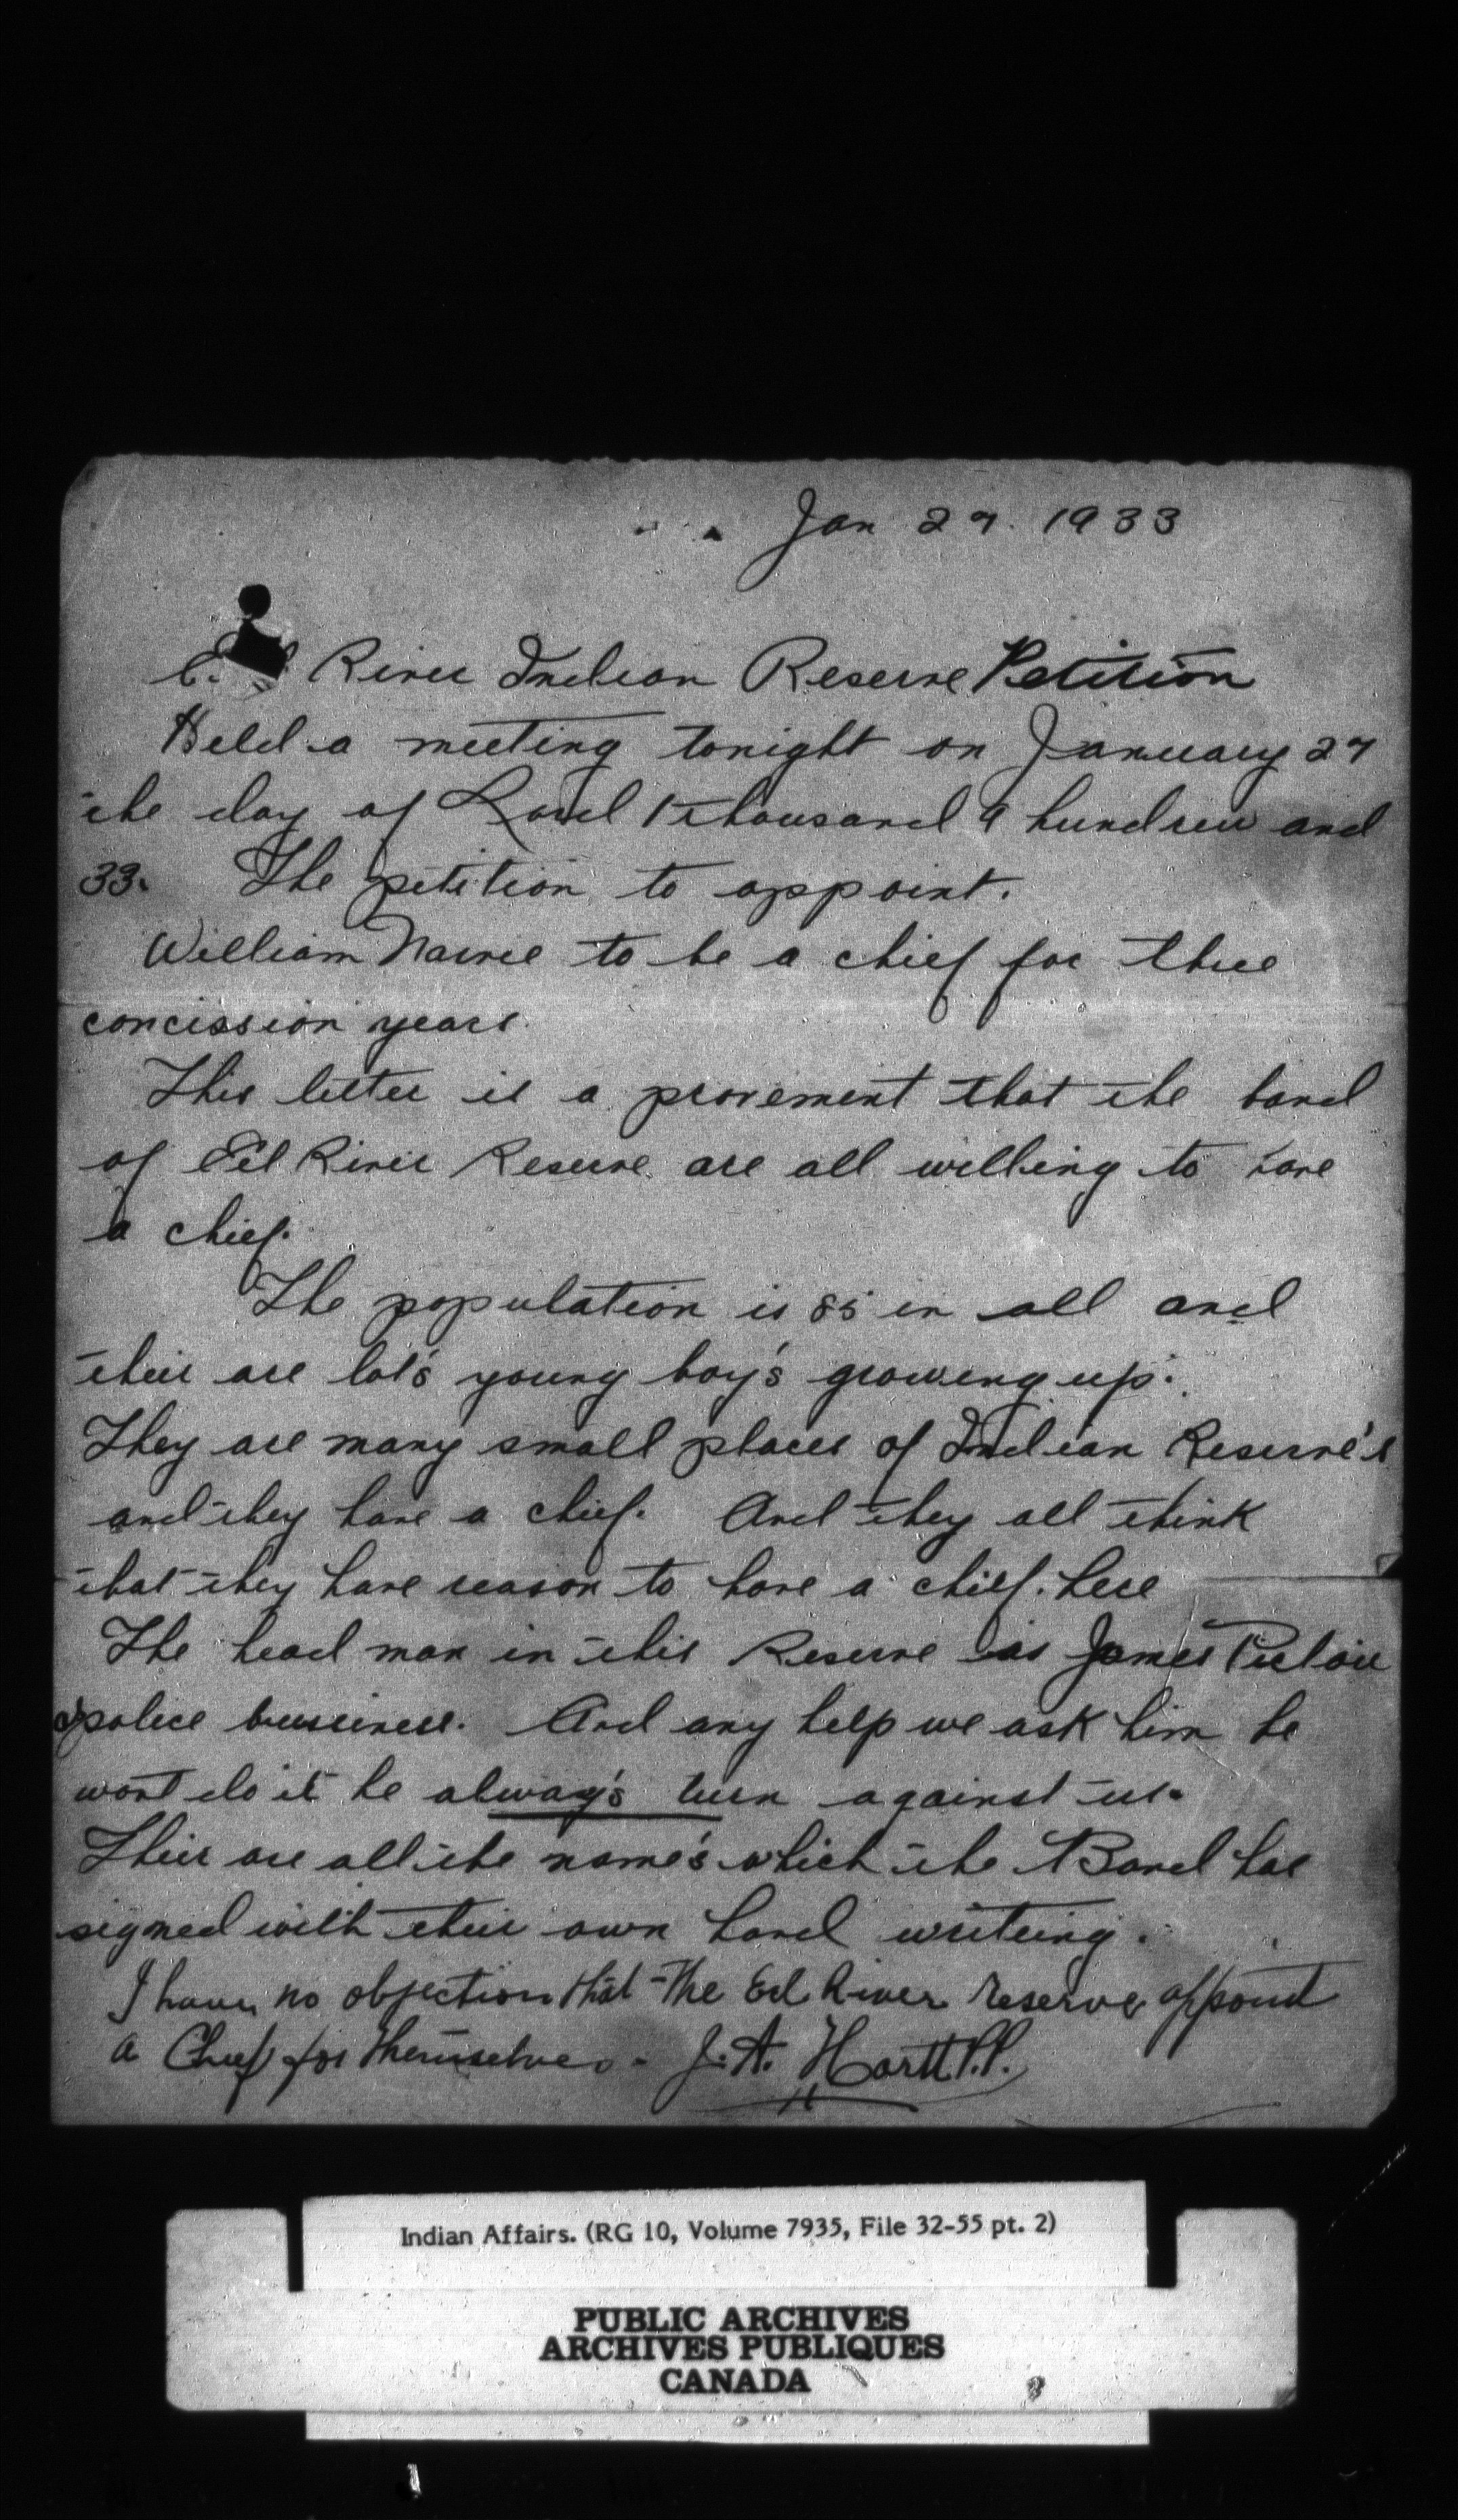 Jan 27. 1933
River Indian Reserve Petition
Held a meeting tonight on January 27
the day of Lord 1 thousand 9 hundred and
33. The petition to appoint.
William to be a chief for three
concission years.
This letter is a provement that the band
of Eel River Reserve are all willing to have
a chief.
The population is 85 in all and
their are lot's young boy's growing up.
They are many small places of Indian Reserve's
and they have a chief. And they all think
that they have reason to have a chief. here
The head man in this Reserve is James
police bussiness. And any help we ask him he
wont do it he alway's turn against us.
Their are all the name's which the Band has
signed with their own hand writeing.
I have no objection that the Eel River reserve appoint
a Chief for themselves. J. A. Hartt P.P.
Indian Affairs. (RG 10, Volume 7935, File 32-55 pt. 2)
PUBLIC ARCHIVES
ARCHIVES PUBLIQUES
CANADA